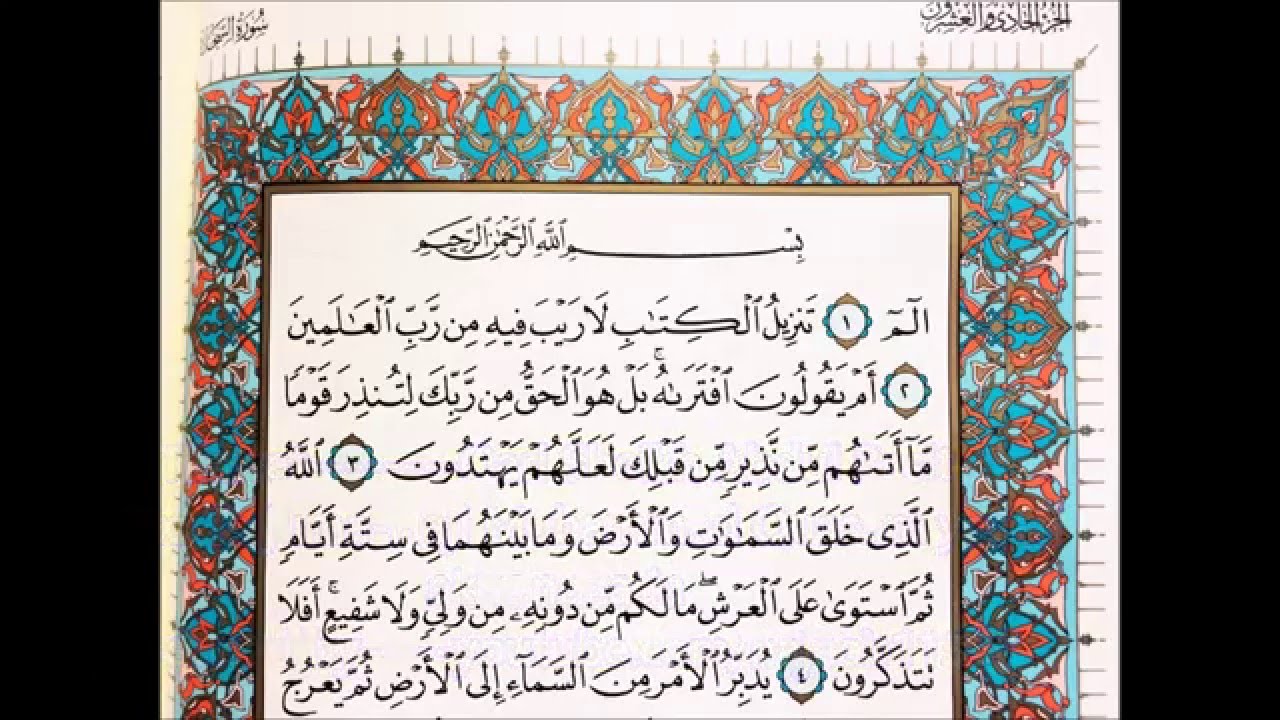 الجزء الحادي والعشرون
سورة السجدة
بِسْمِ اللَّهِ الرَّحْمَٰنِ الرَّحِيمِ
الٓمٓ ١ تَنزِيلُ ٱلْكِتَٰبِ لَا رَيْبَ فِيهِ مِن رَّبِّ ٱلْعَٰلَمِينَ
٢ أَمْ يَقُولُونَ ٱفْتَرَىٰهُ ۚ بَلْ هُوَ ٱلْحَقُّ مِن رَّبِّكَ لِتُنذِرَ قَوْمًا
مَّآ أَتَىٰهُم مِّن نَّذِيرٍ مِّن قَبْلِكَ لَعَلَّهُمْ يَهْتَدُونَ ٣ ٱللَّهُ
ٱلَّذِى خَلَقَ ٱلسَّمَٰوَٰتِ وَٱلْأَرْضَ وَمَا بَيْنَهُمَا فِى سِتَّةِ أَيَّامٍ
ثُمَّ ٱسْتَوَىٰ عَلَى ٱلْعَرْشِ ۖ مَا لَكُم مِّن دُونِهِۦ مِن وَلِىٍّ وَلَا شَفِيعٍ ۚ أَفَلَا
تَتَذَكَّرُونَ ٤ يُدَبِّرُ ٱلْأَمْرَ مِنَ ٱلسَّمَآءِ إِلَى ٱلْأَرْضِ ثُمَّ يَعْرُجُ